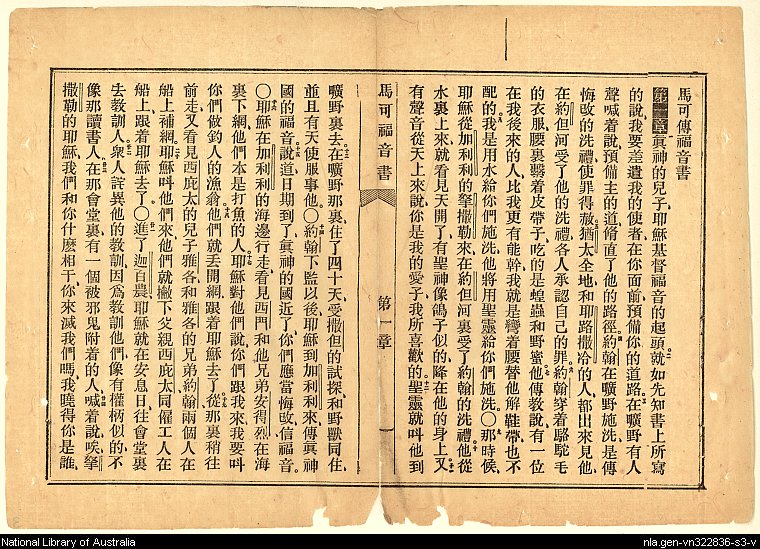 馬可傳福音書
第一章眞神的兒子、耶穌基督福音的起頭、就如先知書上所寫
的說、我要差遣我的使者、在你面前預備你的道路、在曠野有人
聲喊着說、預備主的道、脩直了他的路徑、約翰在曠野施洗、是傳
悔改的洗禮、使罪得赦、猶太全地、和耶路撒冷的人、都出來見他、
在約但河受了他的洗禮、各人承認自己的罪、約翰穿着駱駝毛
的衣服、腰裏繫着皮帶子、吃的是蝗蟲和野蜜、他傳教說、有一位
在我後來的人、比我更有能幹、我就是彎着腰替他解鞋帶、也不
配的、我是用水給你們施洗、他將用聖靈給你們施洗、〇那時候、
耶穌從加利利的拏撒勒來、在約但河裏受了約翰的洗禮、他從
水裏上來、就看見天開了、有聖神像鴿子似的降在他的身上、又
有聲音從天上來、說、你是我的愛子、我所喜歡的、聖靈就叫他到
馬可福音書 第一章 一
曠野裏去、在曠野那裏住了四十天、受撒但的試探、和野獸同住、
並且有天使服事他、〇約翰下監以後、耶穌到加利利來、傳眞神
國的福音、說道、日期到了、眞神的國近了、你們應當悔改信福音。
〇耶穌在加利利的海邊行走、看見西門、和他兄弟安得烈、在海
裏下網、他們本是打魚的人、耶穌對他們說、你們跟我來、我要叫
你們做釣人的漁翁、他們就丟開網、跟着耶穌去了、從那裏稍往
前走、又看見西庇太的兒子雅各、和雅各的兄弟約翰、兩個人在
船上補網、耶穌叫他們來、他們就撇下父親西庇太同僱工人在
船上、跟着耶穌去了、〇進了迦百農、耶穌就在安息日、往會堂裏
去教訓人、衆人詫異他的教訓、因爲教訓他們像有權柄似的、不
像那讀書人、在那會堂裏、有一個被邪鬼附着的人、喊着說、唉、拏
撒勒的耶穌、我們和你什麼相干、你來滅我們嗎、我曉得你是誰、
National Library of Australia
nla.gen-vn322836-s3-v